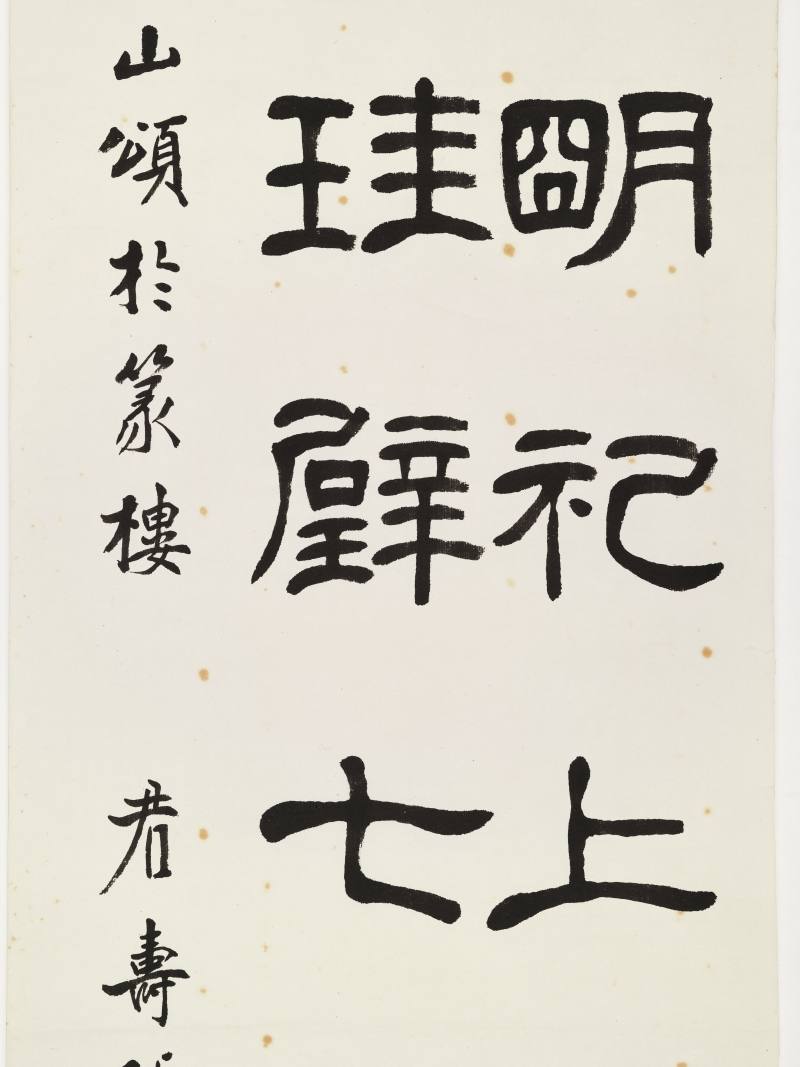 朙祀上
珪璧七
山頌於篆樓　君壽